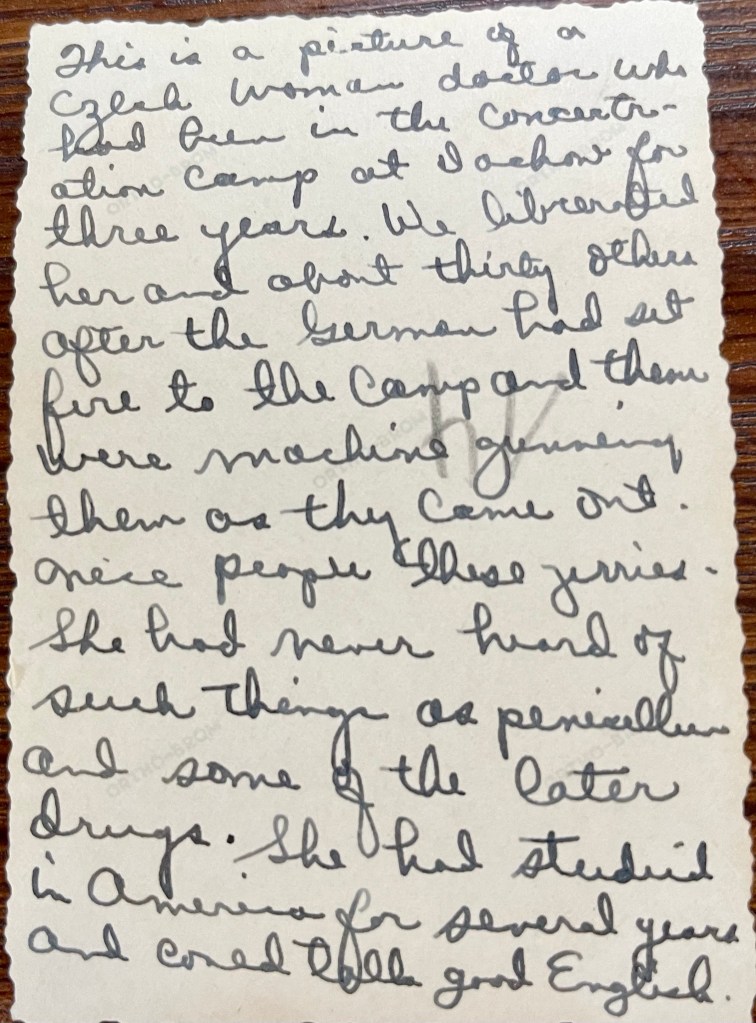 This is a picture of a
Czech woman doctor who
had been in the concentr-
ation camp at Dachow for
three years. We liberated
her and about thirty others
after the German had set
fire to the Camp and them
were machine gunneing
them as they came out.
nice people these jerries.
She had never heard of
such things as penicillun
and some of the later
drugs. She had studied
in America for several years
and could talk good English.
ORTHO-BROM
ORTHO-BROM
ORTHO-BROM